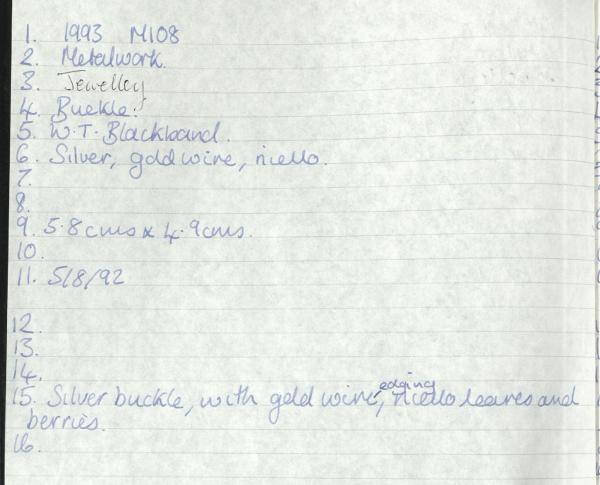 1. 1993 M108
2. Metalwork.
3. Jewelley
4. Buckle.
5. W.T. Blackband.
6. Silver, gold wire, niello.
7.
8.
9. 5.8cms x 4.9cms.
10.
11. 5/8/92
12.
13.
14.
edging
15. Silver buckle, with gold wire, niello leaves and
berries.
16.